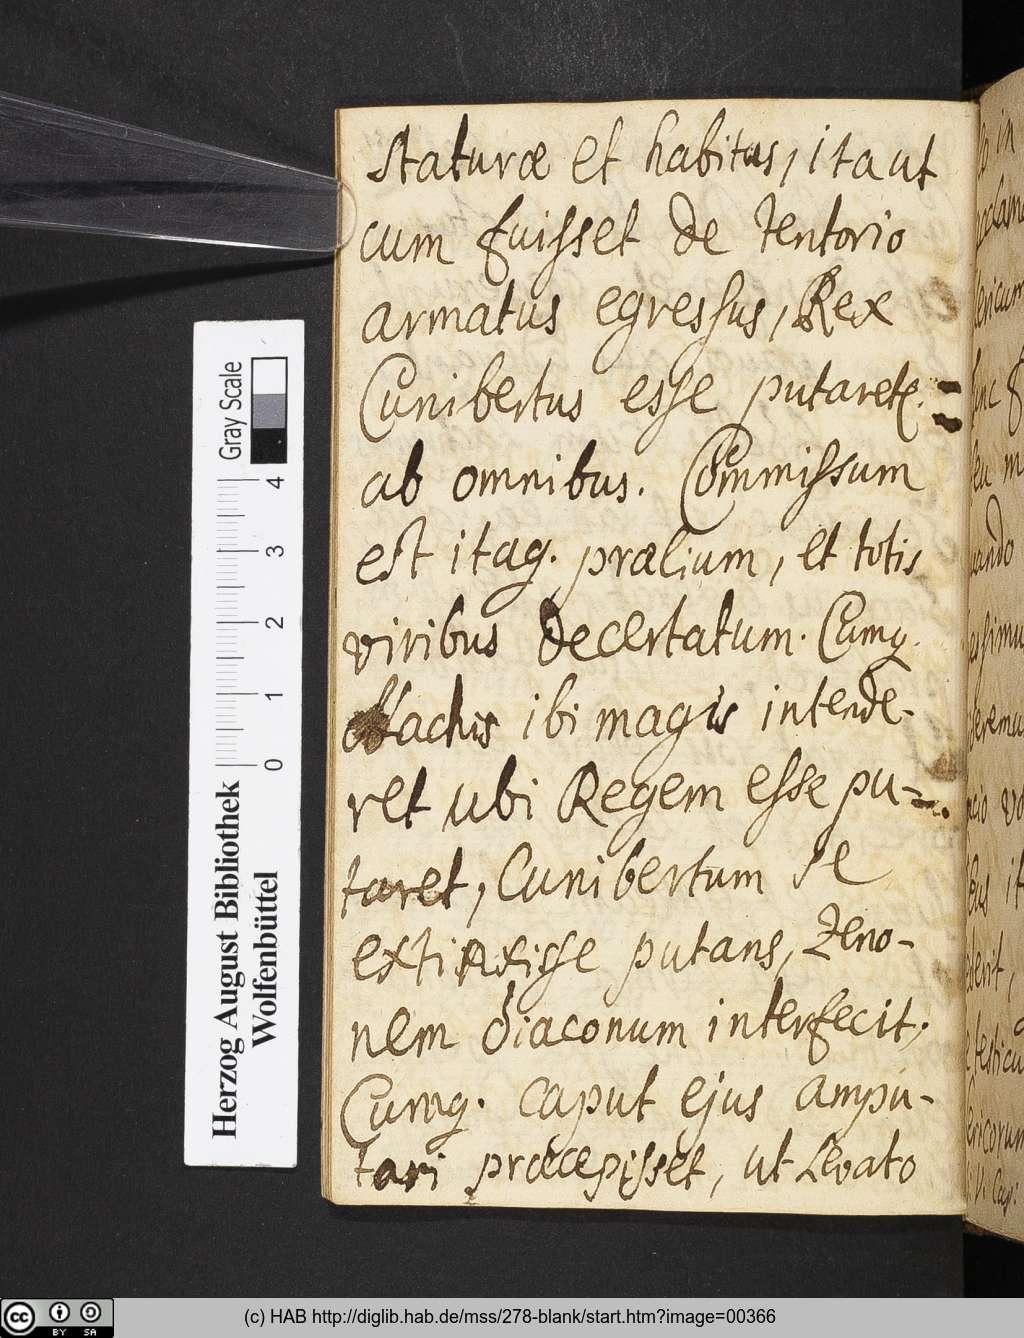 Staturæ et habitus, ita ut
cum fuisset de tentorio
armatus egressus, Rex
Cunibertus esse putaret.
ab omnibus. Commissum
est itaq. prælium, et totis
viribus decertatum. Cumq.
Alachis ibi magis intende-
ret ubi Regem esse pu-
taret, Cunibertum se
extinxisse putans, Zeno-
nem diaconum interfecit,
Cumq. caput ejus ampu-
tari præcepisset, ut Levato
Gray Scale
4
3
2
1
0
Herzog August Bibliothek
Wolfenbüttel
cc BY SA
(c) HAB http://diglib.hab.de/mss/278-blank/start.htm?image=00366